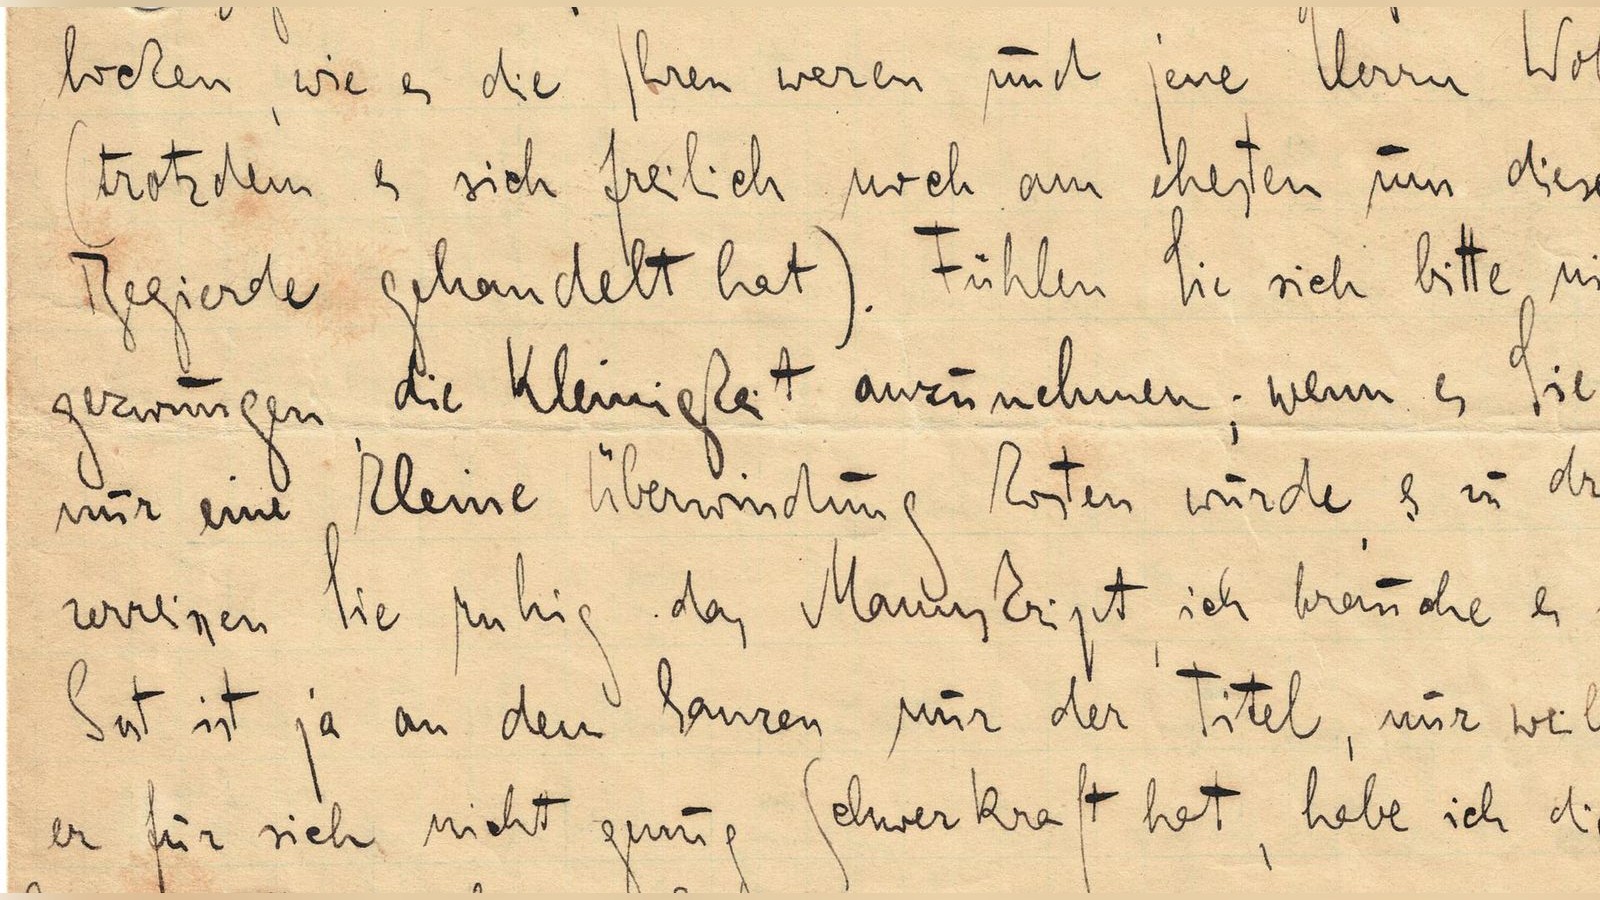 locken, wie es die Ihren waren und jene Herrn
(trotzdem es sich freilich noch am ehesten um diese
Begierde gehandelt hat). Fühlen Sie sich bitte
gezwungen, die Kleinigkeit anzunehmen; wenn es Sie
nur eine kleine Überwindung kosten würde, es zu
zerreißen Sie ruhig das Manuskript, ich brauche es
Gut ist ja an dem Ganzen nur der Titel, nur weil
er für sich nicht genug Schwerkraft hat, habe ich